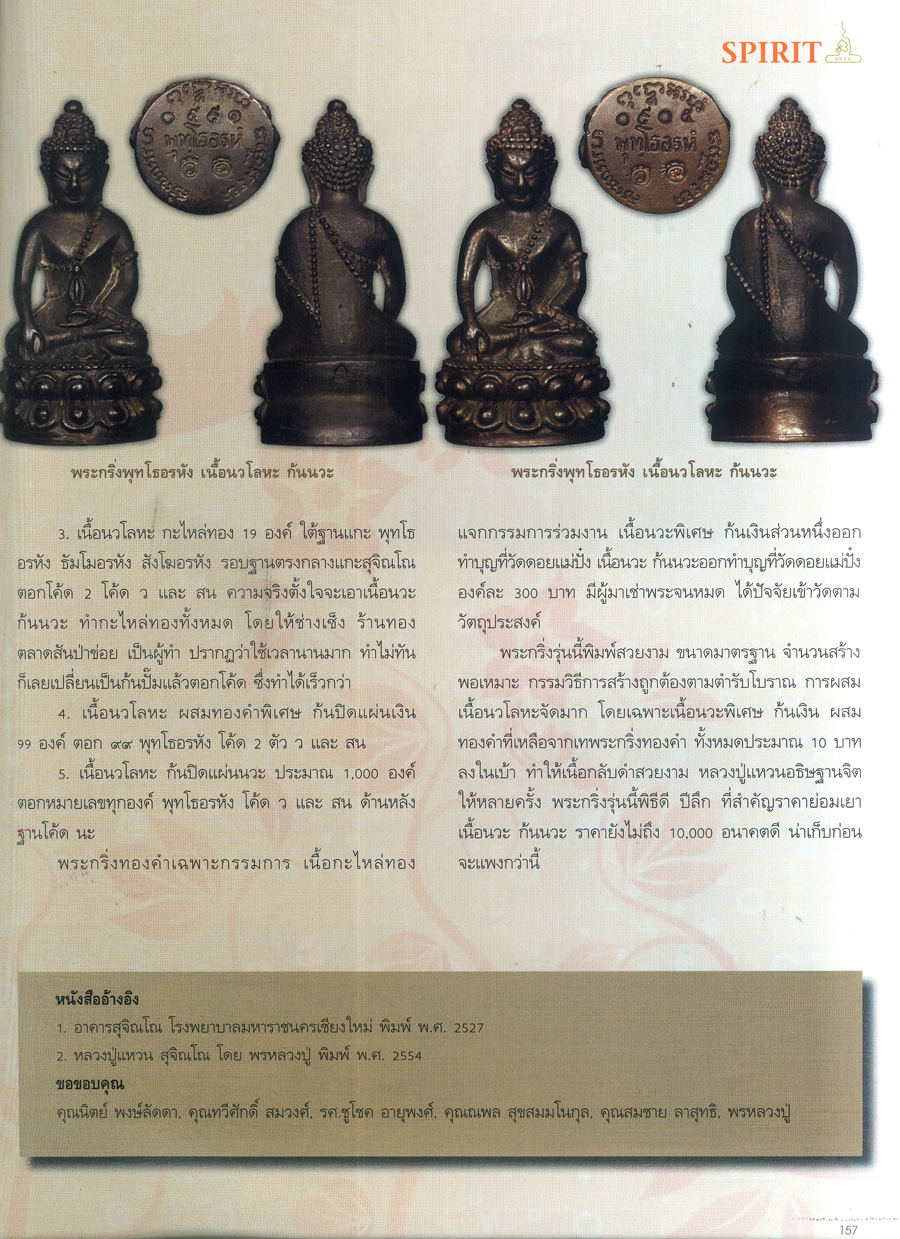 SPIRIT
๐๕๕๑
พุทโธอรหํ
๐๔๐๕
พุทโธอรหํ
พระกริ่งพุทโธอรหัง เนื้อนวโลหะ ก้นนวะ
พระกริ่งพุทโธอรหัง เนื้อนวโลหะ ก้นนวะ
3. เนื้อนวโลหะ กะไหล่ทอง 19 องค์ ใต้ฐานแกะ พุทโธ
อรหัง ธัมโมอรหัง สังโฆอรหัง รอบฐานตรงกลางแกะสุจิณโณ
ตอกโค้ด 2 โค้ด ว และ สน ความจริงตั้งใจจะเอาเนื้อนวะ
ก้นนวะ ทำกะไหล่ทองทั้งหมด โดยให้ช่างเซ็ง ร้านทอง
ตลาดสันป่าข่อย เป็นผู้ทำ ปรากฏว่าใช้เวลานานมาก ทำไม่ทัน
ก็เลยเปลี่ยนเป็นก้นปั๊มแล้วตอกโค้ด ซึ่งทำได้เร็วกว่า
4. เนื้อนวโลหะ ผสมทองคำพิเศษ ก้นปิดแผ่นเงิน
99 องค์ ตอก ๙๙ พุทโธอรหัง โค้ด 2 ตัว ว และ สน
5. เนื้อนวโลหะ ก้นปิดแผ่นนวะ ประมาณ 1,000 องค์
ตอกหมายเลขทุกองค์ พุทโธอรหัง โค้ด ว และ สน ด้านหลัง
ฐานโค้ด นะ
พระกริ่งทองคำเฉพาะกรรมการ เนื้อกะไหล่ทอง
แจกกรรมการร่วมงาน เนื้อนวะพิเศษ ก้นเงินส่วนหนึ่งออก
ทำบุญที่วัดดอยแม่ปั๋ง เนื้อนวะ ก้นนวะออกทำบุญที่วัดดอยแม่ปั๋ง
องค์ละ 300 บาท มีผู้มาเช่าพระจนหมด ได้ปัจจัยเข้าวัดตาม
วัตถุประสงค์
พระกริ่งรุ่นนี้พิมพ์สวยงาม ขนาดมาตรฐาน จำนวนสร้าง
พอเหมาะ กรรมวิธีการสร้างถูกต้องตามตำรับโบราณ การผสม
เนื้อนวโลหะจัดมาก โดยเฉพาะเนื้อนวะพิเศษ ก้นเงิน ผสม
ทองคำที่เหลือจากเทพระกริ่งทองคำ ทั้งหมดประมาณ 10 บาท
ลงในเบ้า ทำให้เนื้อกลับดำสวยงาม หลวงปู่แหวนอธิษฐานจิต
ให้หลายครั้ง พระกริ่งรุ่นนี้พิธีดี ปีลึก ที่สำคัญราคาย่อมเยา
เนื้อนวะ ก้นนวะ ราคายังไม่ถึง 10,000 อนาคตดี น่าเก็บก่อน
จะแพงกว่านี้
หนังสืออ้างอิง
1. อาคารสุจิณโณ โรงพยาบาลมหาราชนครเชียงใหม่ พิมพ์ พ.ศ. 2527
2. หลวงปู่แหวน สุจิณโณ โดย พรหลวงปู่ พิมพ์ พ.ศ. 2554
ขอขอบคุณ
คุณนิตย์ พงษ์ลัดดา, คุณทวีศักดิ์ สมวงศ์, รศ.ชูโชค อายุพงศ์, คุณณพล สุขสมมโนกุล, คุณสมชาย ลาสุทธิ, พรหลวงปู่
157